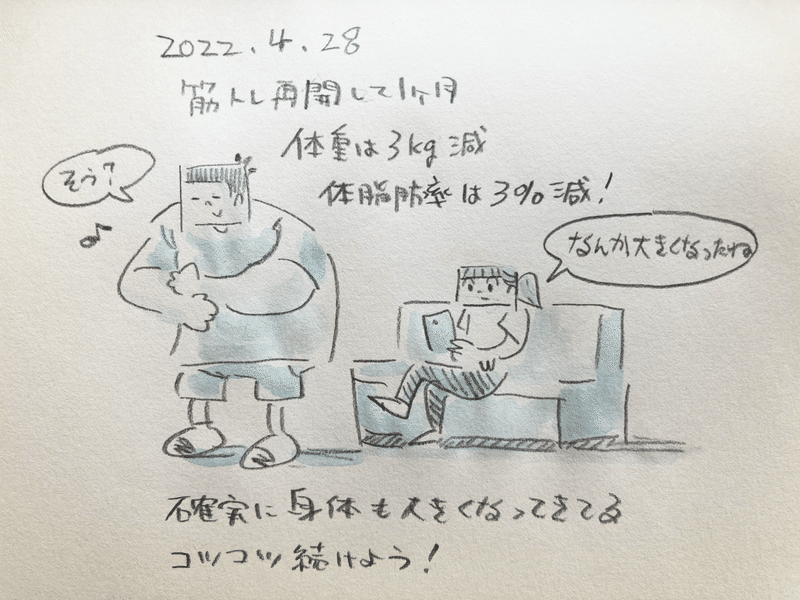 2022.4.28
筋トレ再開して1ヶ月
体重は3kg減
体脂肪率は3%減!
そう?
なんか大きくなったね
確実に身体も大きくなってきてる
コツコツ続けよう!